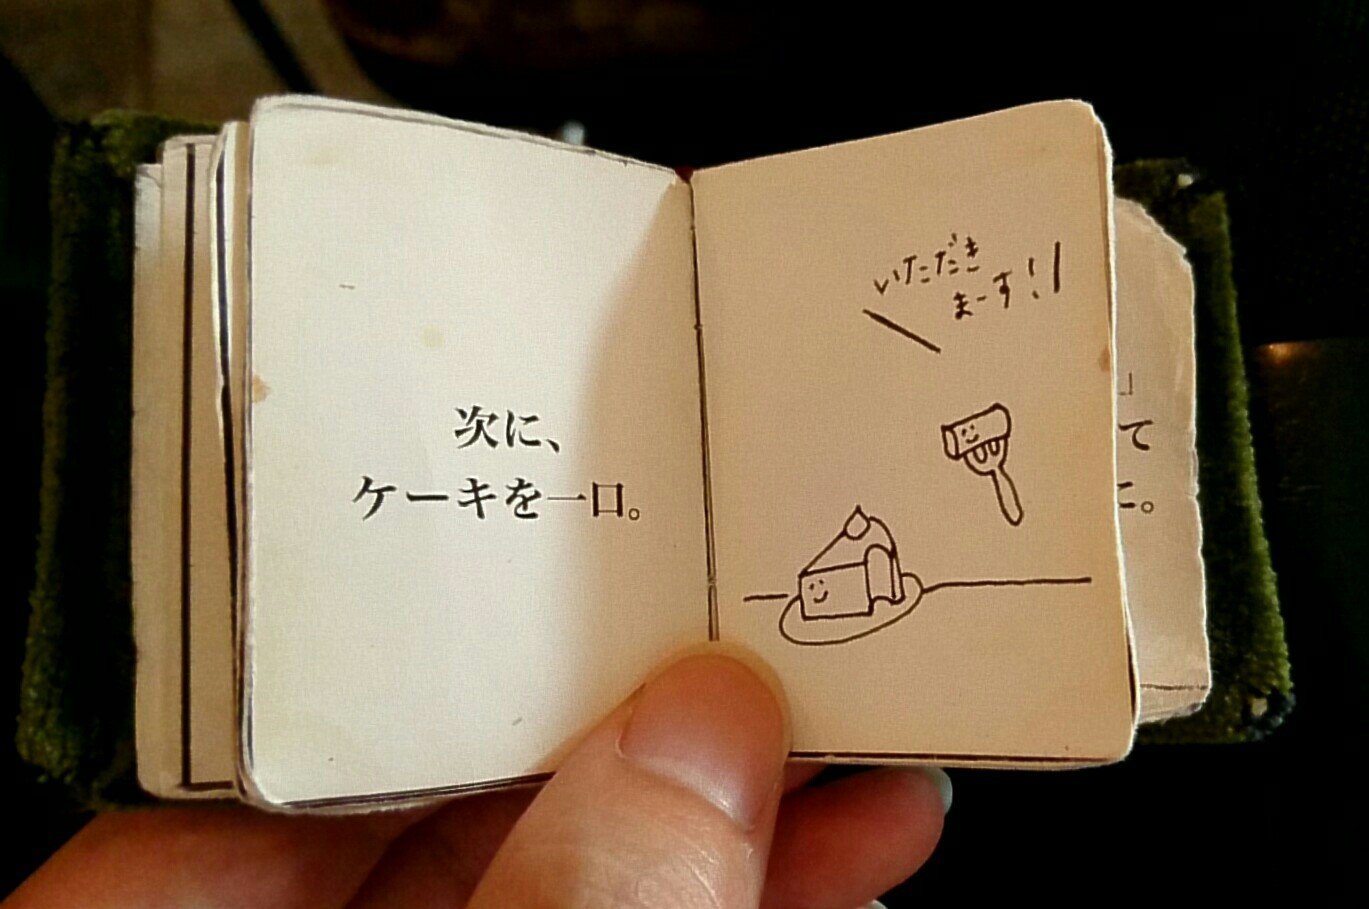 次に、
ケーキを一口。
いただき
まーす!!
」
て
に。